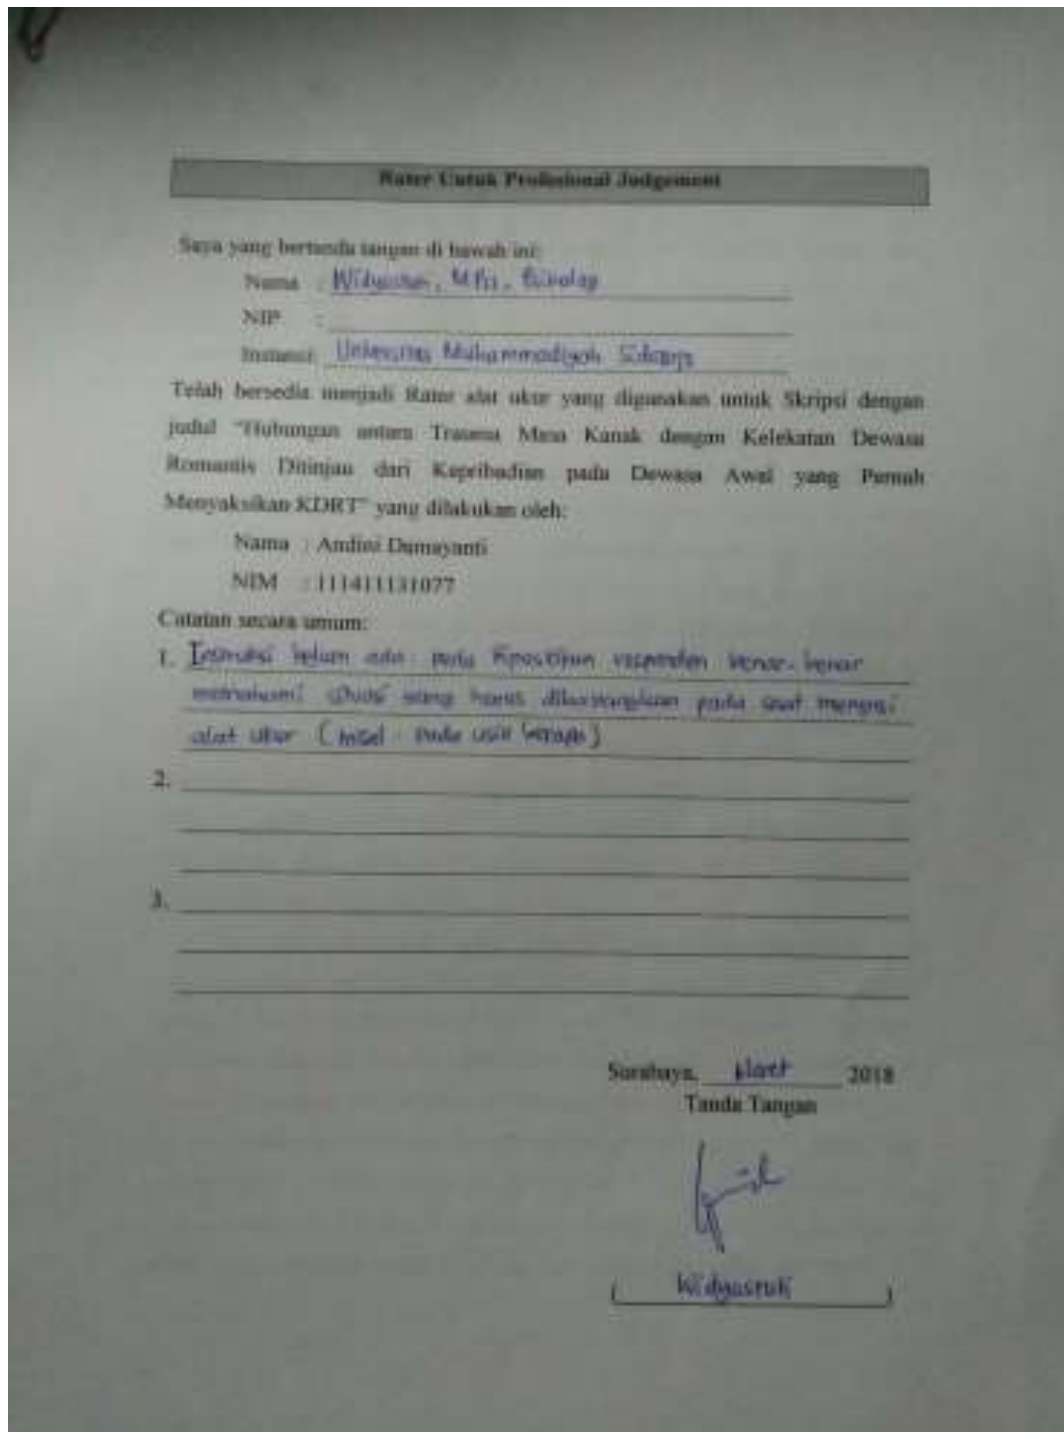 Rater Untuk Profesional Judgement
Saya yang bertanda tangan di bawah ini:
Nama : Widyastuti, M.Psi, Psikolog
NIP :
Instansi: Universitas Muhammadiyah Sidoarjo
Telah bersedia menjadi Rater alat ukur yang digunakan untuk Skripsi dengan
judul "Hubungan antara Trauma Masa Kanak dengan Kelekatan Dewasa
Romantis Ditinjau dari Kepribadian pada Dewasa Awal yang Pernah
Menyaksikan KDRT" yang dilakukan oleh:
Nama : Andini Damayanti
NIM : 111411131077
Catatan secara umum:
1. Instruksi belum ada pada responden benar-benar
memahami yang harus pada saat mengisi
alat ukur (misal pada usia berapa)
2.
3.
Surabaya, Maret 2018
Tanda Tangan
( Widyastuti )